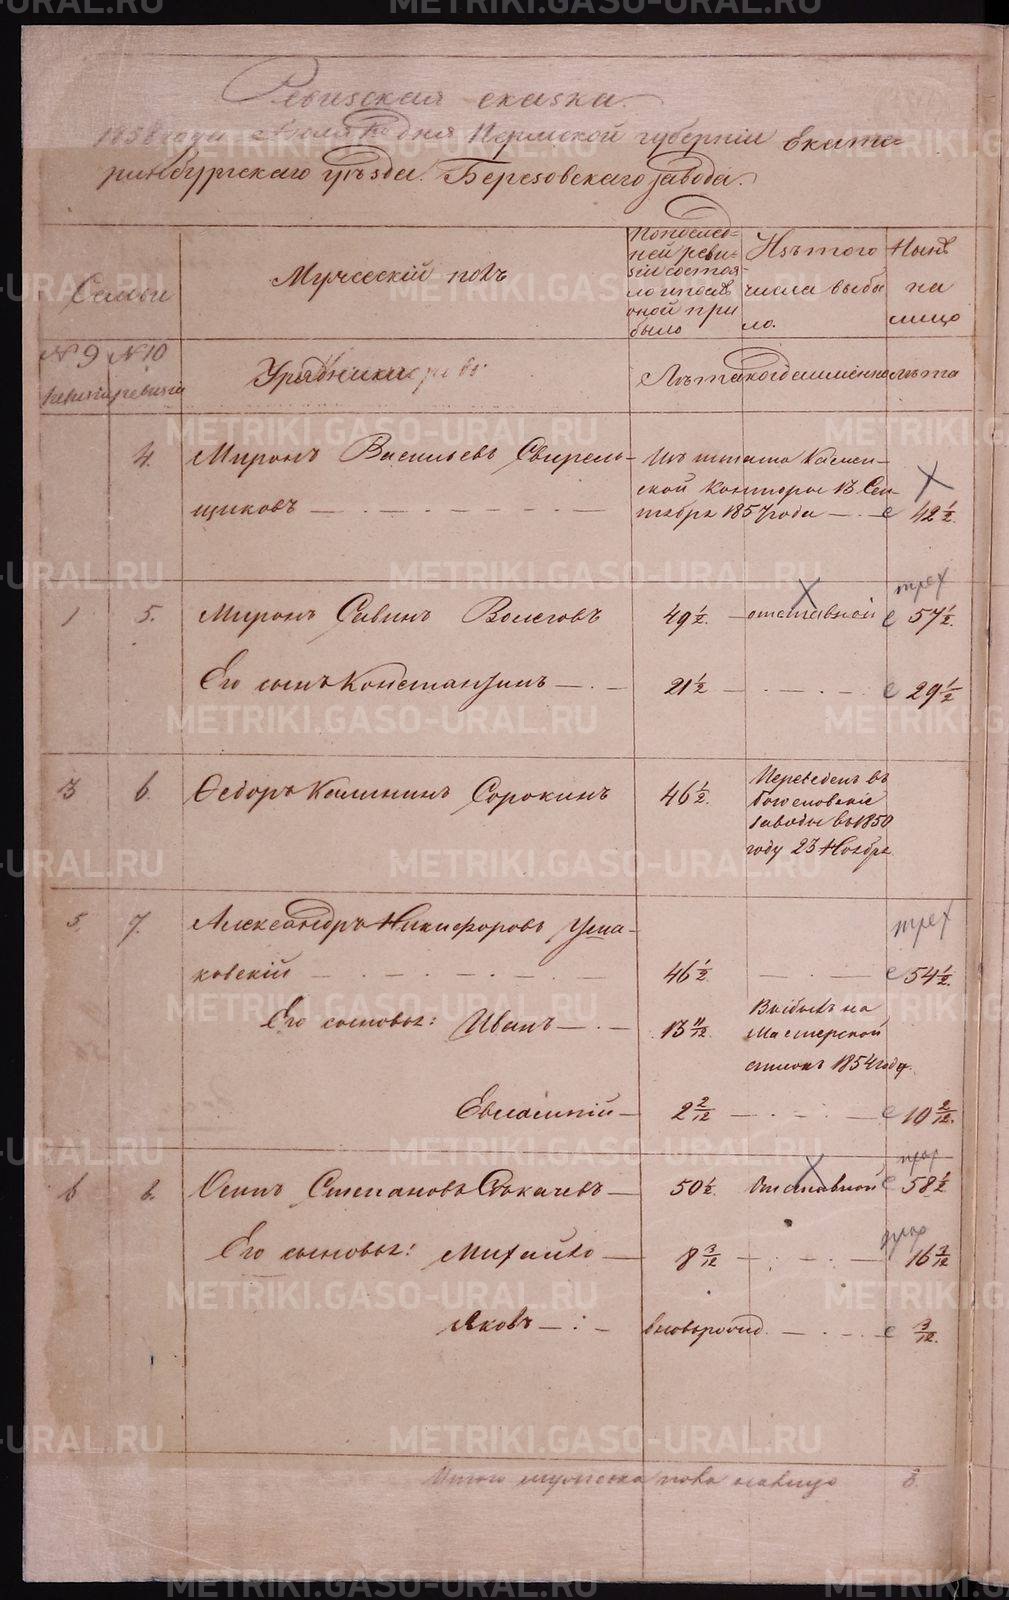 Ревизская сказка.
1858 года Июля 1го дня Пермской губернiи Екате-
ринбургскаго уѣзда. Березовскаго завода.
Семьи
Мужескiй полъ
По послед-
ней реви-
зiи состоя-
ло и посль
оной при
было
Изъ того
числа выбы
ло.
Нынѣ
на
лицо
№ 9 ревизiи
№ 10 ревизiи
Урядники
Лѣта
когда именно
лѣта
4. Миронъ Васильевъ Свирель-
щиковъ
Изъ штата Камен-
ской Конторы 13 Сен-
тября 1857 года
42 1/2.
1 5. Миронъ Савинъ Волеговъ 49 1/2. отставной 57 1/2.
трех
Его сынъ Константинъ 21 1/2 29 1/2
3 6. Ѳедоръ Калининъ Сорокинъ 46 1/2.
Переведенъ въ
Богословскiе
заводы въ 1850
году 23 Ноября
5 7. Александръ Никифоровъ Уша-
ковскiй 46 1/2 54 1/2.
трех
Его сыновья: Иванъ 13 11/12
Выбылъ на
Мастерской
списокъ 1854 году.
Евлампiй 2 2/12 10 2/12.
6 8. Осипъ Степановъ Стокачевъ 50 1/2. Отставной 58 1/2
Его сыновья: Михайло 8 3/12 16 3/12
Яковъ вновьрожд. 3/12.
Итого мужеска пола налицо 8.
METRIKI.GASO-URAL.RU